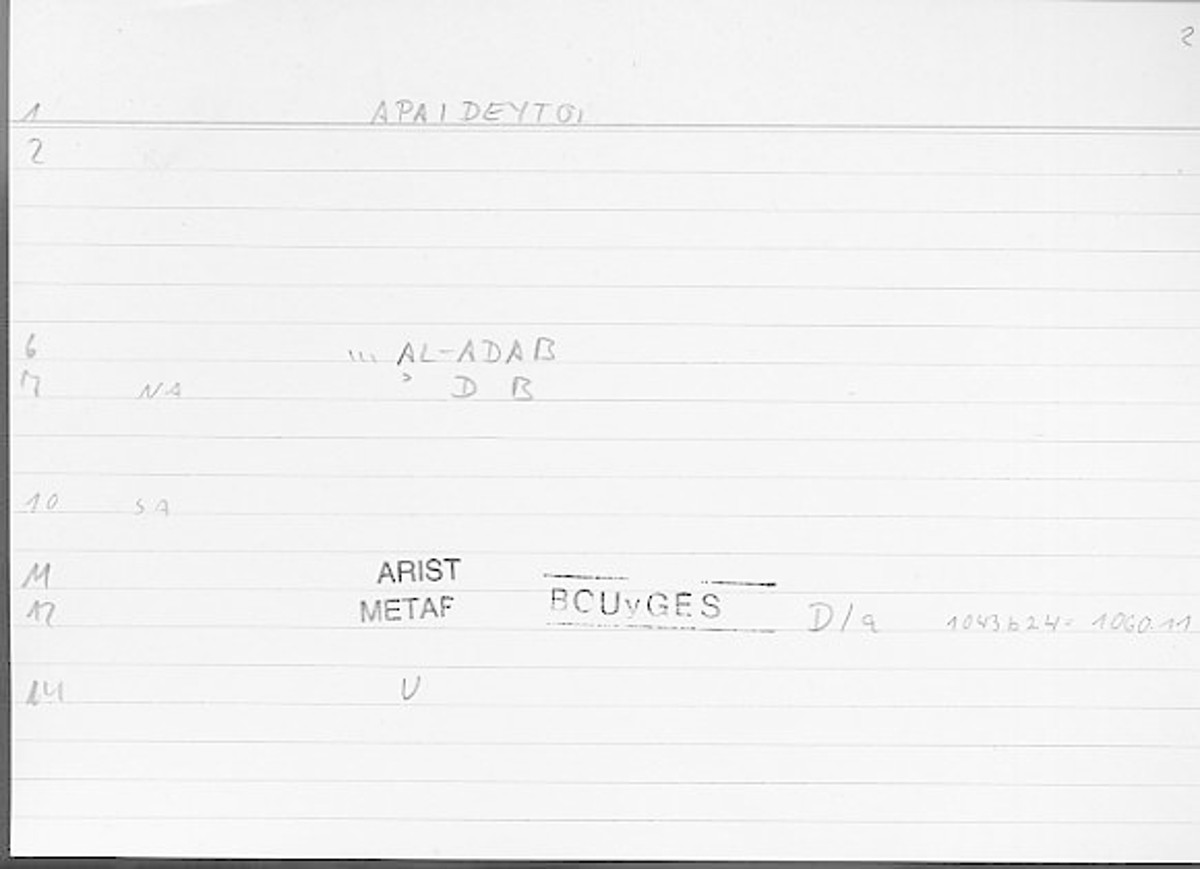 2
1 APAIDEYTOI
2
6 ... AL-ADAB
7 NA ʾ D B
10 SA
11 ARIST
12 METAF BOUYGES D/a 1043b24= 1060.11
14 V